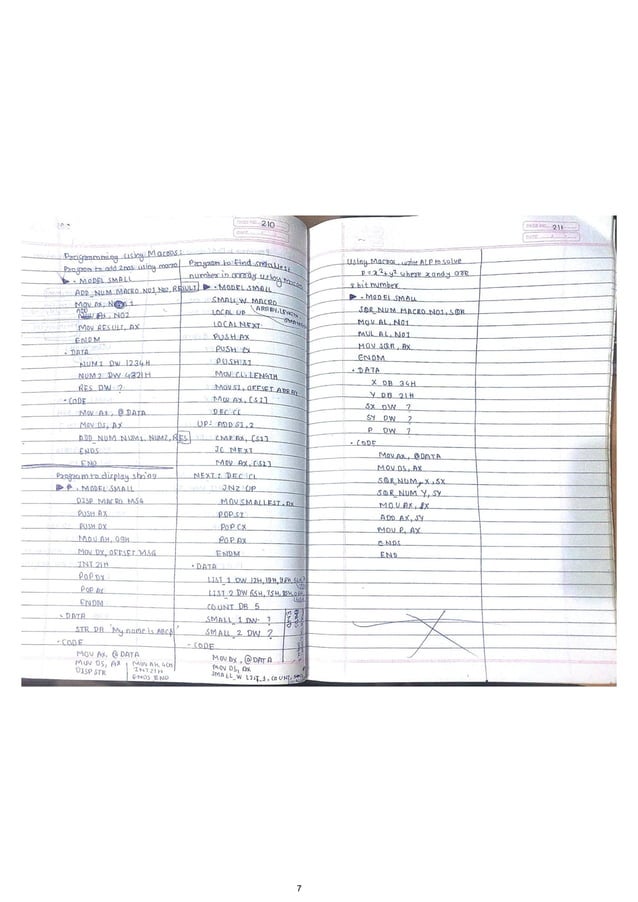 PAGE NO. 210
DATE
Programming Using Macros:
Program to add 2 nos using macro
▶ .MODEL SMALL
ADD_NUM MACRO NO1, NO2, RESULT
MOV AX, NO1
ADD AX, NO2
MOV RESULT, AX
ENDM
.DATA
NUM1 DW 1234H
NUM2 DW 4321H
RES DW ?
.CODE
MOV AX, @DATA
MOV DS, AX
ADD_NUM NUM1, NUM2, RES
ENDS
END
Program to display string
▶ .MODEL SMALL
DISP MACRO MSG
PUSH AX
PUSH DX
MOV AH, 09H
MOV DX, OFFSET MSG
INT 21H
POP DX
POP AX
ENDM
.DATA
STR DB 'My name is
.CODE
MOV AX, @DATA
MOV DS, AX
DISP STR
MOV AH, 4CH
INT 21H
ENDS END
Program to find smallest
number in array using macro
▶ .MODEL SMALL
SMALL_W MACRO
ARRAY, LENGTH
LOCAL UP
LOCAL NEXT
PUSH AX
PUSH CX
PUSH SI
MOV CL, LENGTH
MOV SI, OFFSET ARRAY
MOV AX, [SI]
DEC CL
UP: ADD SI, 2
CMP AX, [SI]
JC NEXT
MOV AX, [SI]
NEXT: DEC CL
JNZ UP
MOV SMALLEST, AX
POP SI
POP CX
POP AX
ENDM
.DATA
LIST_1 DW 12H, 13H,
LIST_2 DW
COUNT DB 5
SMALL_1 DW ?
SMALL_2 DW ?
.CODE
MOV AX, @DATA
MOV DS, AX
SMALL_W LIST_1, COUNT,
PAGE NO. 211
DATE
Using Macros, write ALP to solve
P = x²+y² where x and y are
8 bit number
▶ .MODEL SMALL
SQR_NUM MACRO NO1, SQR
MOV AL, NO1
MUL AL, NO1
MOV SQR, AX
ENDM
.DATA
X DB 34H
Y DB 21H
SX DW ?
SY DW ?
P DW ?
.CODE
MOV AX, @DATA
MOV DS, AX
SQR_NUM X, SX
SQR_NUM Y, SY
MOV AX, SX
ADD AX, SY
MOV P, AX
ENDS
END
7